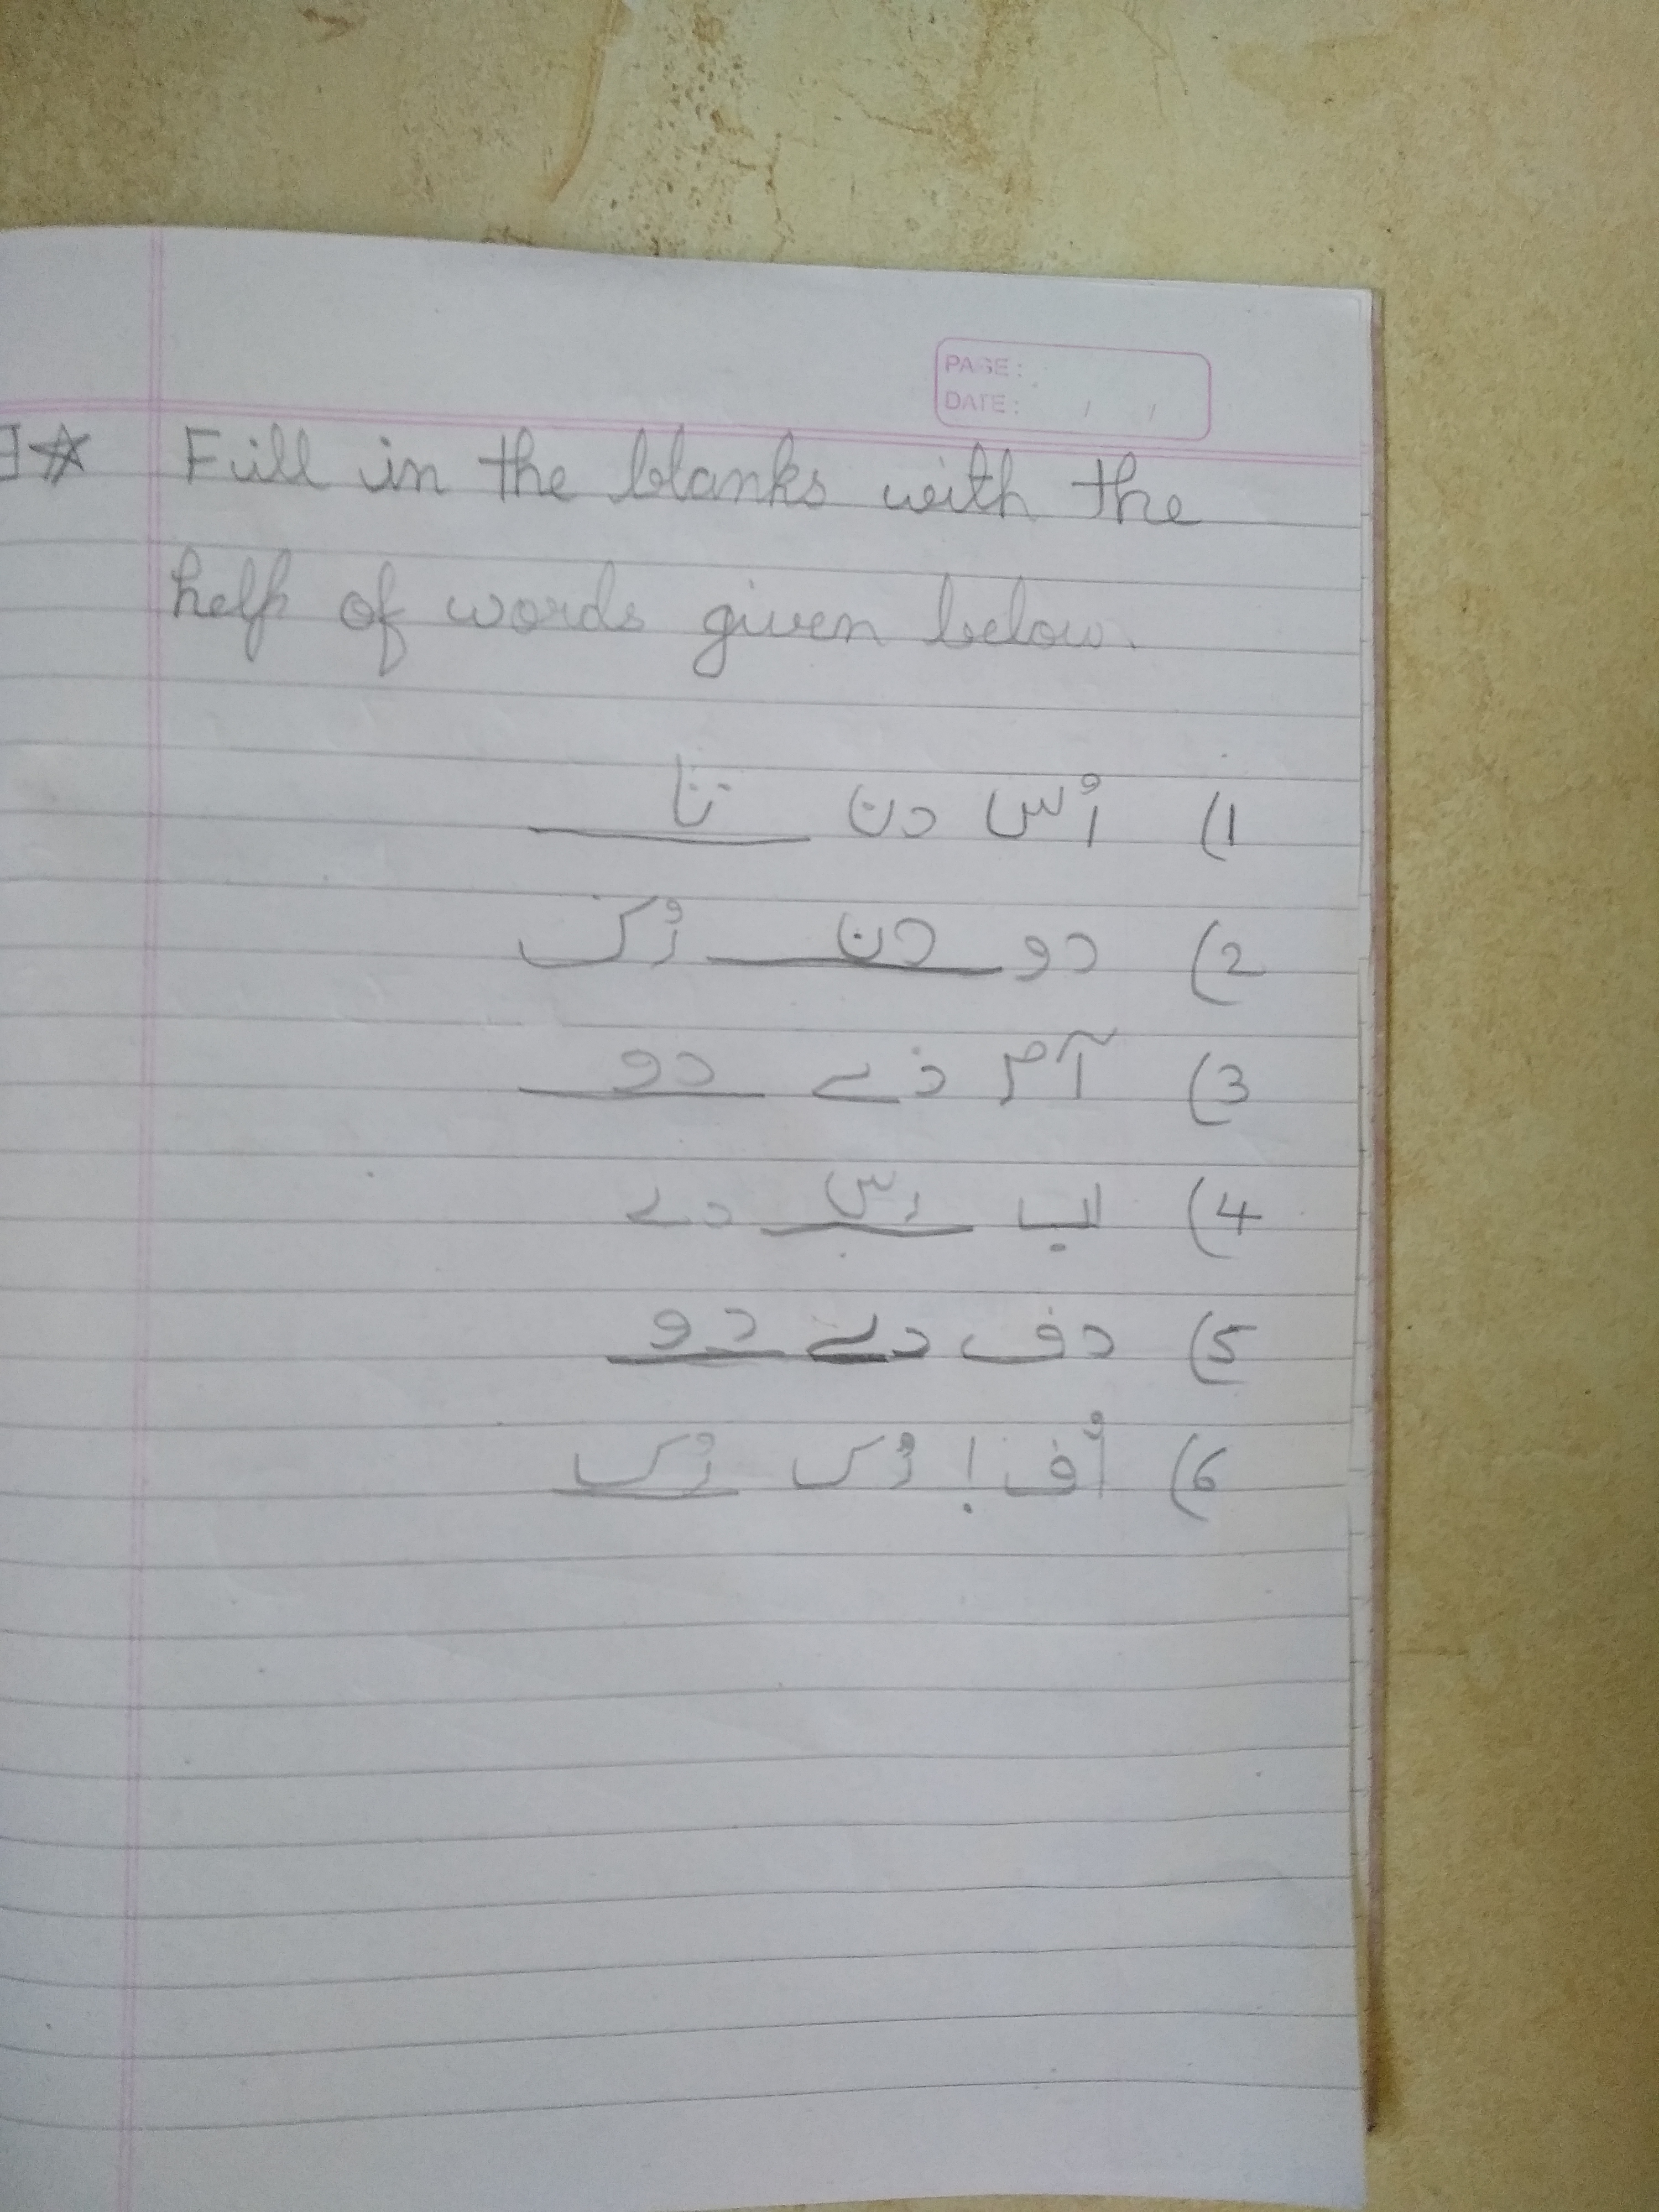 PAGE:
DATE: / /
Fill in the blanks with the
help of words given below.
1) اُس دن تا
2) دو دن رُک
3) آم دے دو
4) اب اس دے
5) دف دے دو
6) اُف! رُک رُک